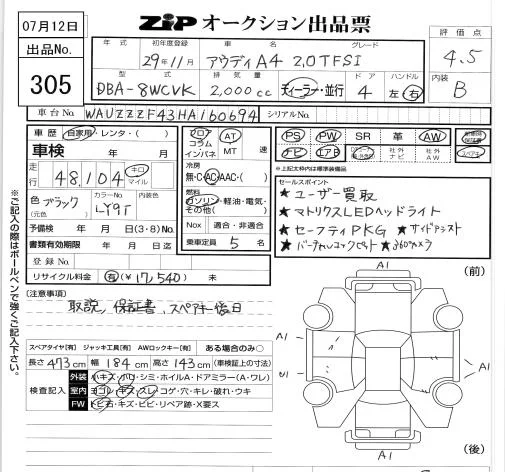 07月12日
ZiP オークション出品票
出品No.
305
年式 初年度登録 車名 グレード
29年11月 アウディA4 2.0TFSI
評価点
4.5
型式 排気量 ドア ハンドル
DBA-8WCVK 2,000cc ディーラー・並行 4 左 右
内装
B
車台No. WAUZZZF43HA160694 シリアルNo.
車歴 自家用・レンタ・( )
車検 年 月
走行 48,104 キロ マイル
色 ブラック (元色) カラーNo. LY9T 内装色
予備検 年 月 日(3・8)No.
書類有効期限 年 月 日迄
登録No.
リサイクル料金 有(¥17,540) 未
フロア コラム インパネ AT MT 速
冷房
無・C・AC・AAC・( )
燃料
ガソリン・軽油・電気・その他( )
Nox 適合・非適合
乗車定員 5 名
PS PW SR 革 AW
ナビ エアB 社外ナビ 社外AW スペアキー
※上記太枠内は標準装備品
セールスポイント
★ユーザー買取
★マトリクスLEDヘッドライト
★セーフティPKG ★サイドアシスト
★バーチャルコックピット ★360°カメラ
(注意事項)
取説, 保証書, スペアキー後日
スペアタイヤ[有] ジャッキ工具[有] AWロックキー[有] ある場合のみ○
長さ 473cm 幅 184cm 高さ 143cm (車検証上の寸法)
検査記入
外装 小キズ・小ハ・シミ・ホイルA・ドアミラー(A・ワレ)
室内 ヨゴレ・キズ・スレ・コゲ・穴・キレ・破れ・ウキ
FW トビ石・キズ・ヒビ・リペア跡・X要ス
A1 (前)
A1
A1
A1
A1 (後)
※ご記入の際はボールペンで強くご記入下さい。